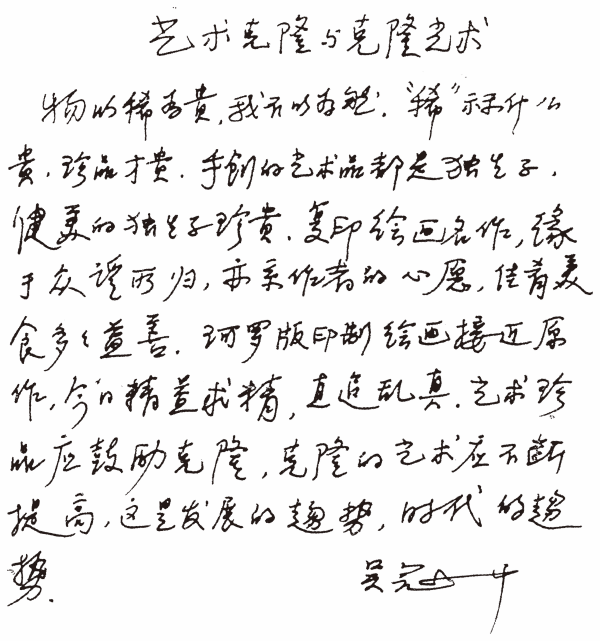 艺术克隆与克隆艺术
物以稀为貴,我不以为然.“稀”未什么
貴,珍品才貴.手創的艺术品都是独生子,
健美的独生子珍貴.复印绘画名作,缘
于众望所归,亦系作者的心愿,佳肴美
食多多益善.珂罗版印制绘画接近原
作,今日精益求精,直追乱真.艺术珍
品应鼓励克隆,克隆的艺术应不断
提高,这是发展的趨势,时代的趨
势.
吴冠中